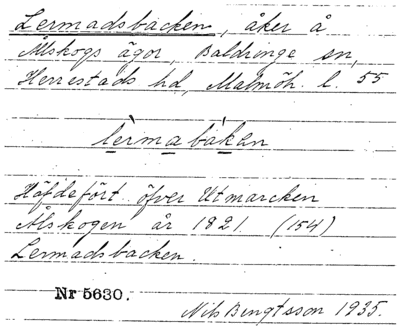 Lermadsbacken, åker å
Ålskogs ägor, Baldringe sn,
Herrestads hd, Malmöh. l. 55
lèrmabákan
Häfdefört öfver Utmarcken
Ålskogen år 1821. (154)
Lermadsbacken.
Nr 5630.
Nils Bengtsson 1935.